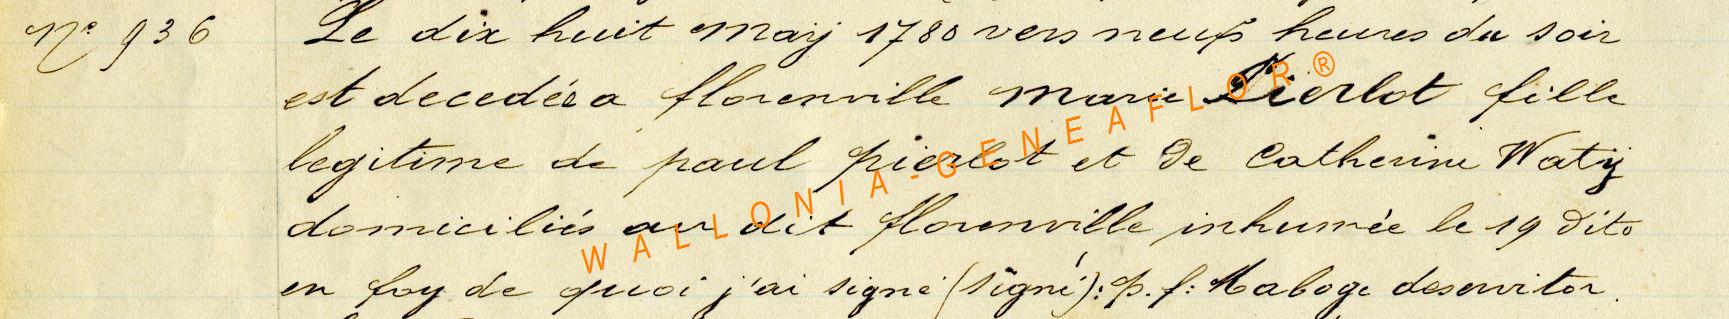 N° 936
Le dix huit may 1780 vers neufs heures du soir
est decedée a florenville Marie Pierlot fille
legitime de paul pierlot et de Catherine Waty
domiciliés au dit florenville inhumée le 19 dito
en foy de quoi j'ai signé (signé): p. f: Maboge deservitor.
WALLONIA-GENEAFLOR®